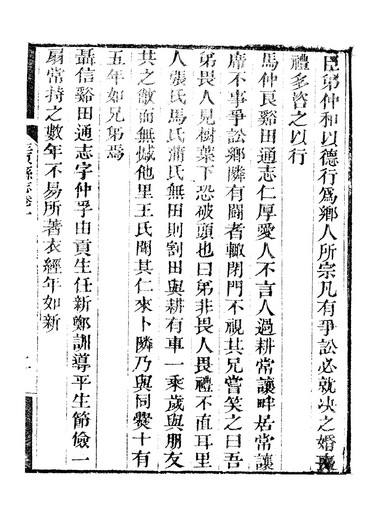 臣弟仲和以德行爲鄉人所宗凡有爭訟必就决之婚喪
禮多咨之以行
馬仲良谿田通志仁厚愛人不言人過耕常讓畔居常讓
席不事爭訟鄉隣有鬪者輙閉門不視其兄嘗笑之曰吾
弟畏人見樹葉下恐破頭也曰弟非畏人畏禮不直耳里
人張氏馬氏蒲氏無田則割田與耕有車一乘歲與朋友
共之敝而無憾他里王氏聞其仁來卜隣乃與同爨十有
五年如兄弟焉
聶信谿田通志字仲孚由貢生任新鄭訓導平生節儉一
扇常持之數年不易所著衣經年如新